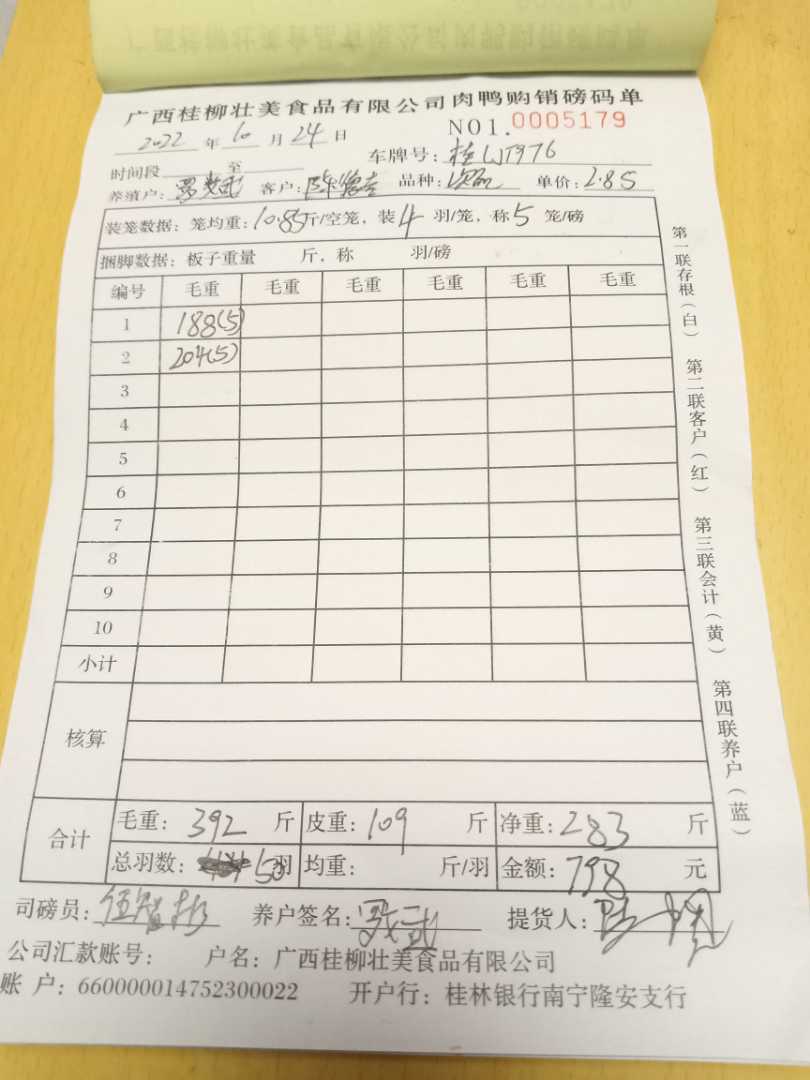 广西桂柳壮美食品有限公司肉鸭购销磅码单
2022 年 10 月 24 日 NO1.0005179
时间段 至 车牌号: 桂
养殖户: 罗 武 客户: 陈 品种: 次品 单价: 2.85
装笼数据: 笼均重: 10.85斤/空笼, 装 4 羽/笼, 称 5 笼/磅
捆脚数据: 板子重量 斤, 称 羽/磅
编号 毛重 毛重 毛重 毛重 毛重 毛重
1 188(5)
2 204(5)
3
4
5
6
7
8
9
10
小计
核算
合计 毛重: 392 斤 皮重: 109 斤 净重: 283 斤
总羽数: 50 羽 均重: 斤/羽 金额: 798 元
司磅员: 伍 彬 养户签名: 罗 武 提货人: 陈
公司汇款账号: 户名: 广西桂柳壮美食品有限公司
账 户: 660000014752300022 开户行: 桂林银行南宁隆安支行
第一联存根(白) 第二联客户(红) 第三联会计(黄) 第四联养户(蓝)